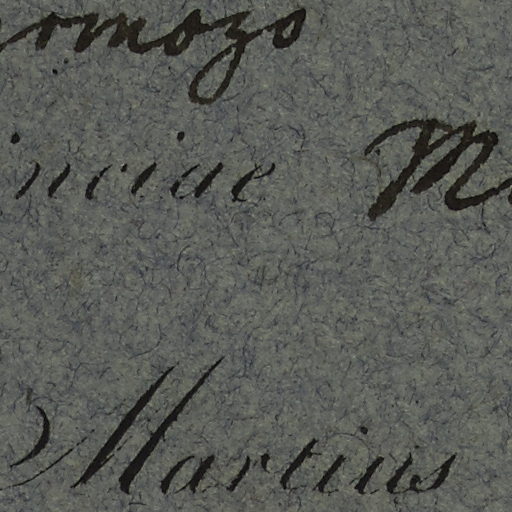 ormozo
inciae M
Martius